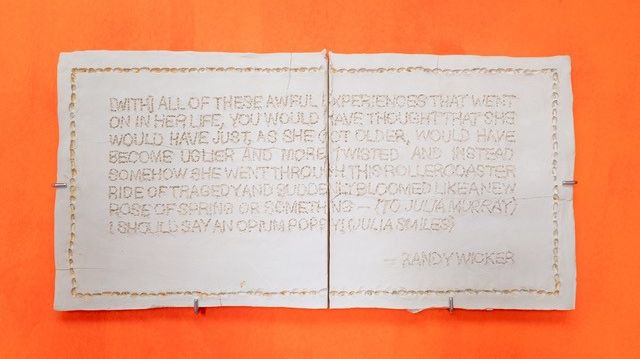 [WITH] ALL OF THESE AWFUL EXPERIENCES THAT WENT
ON IN HER LIFE, YOU WOULD HAVE THOUGHT THAT SHE
WOULD HAVE JUST, AS SHE GOT OLDER, WOULD HAVE
BECOME UGLIER AND MORE TWISTED AND INSTEAD
SOMEHOW SHE WENT THROUGH THIS ROLLERCOASTER
RIDE OF TRAGEDY AND SUDDENLY BLOOMED LIKE A NEW
ROSE OF SPRING OR SOMETHING — (TO JULIA MURRAY)
I SHOULD SAY AN OPIUM POPPY! (JULIA SMILES)
— RANDY WICKER